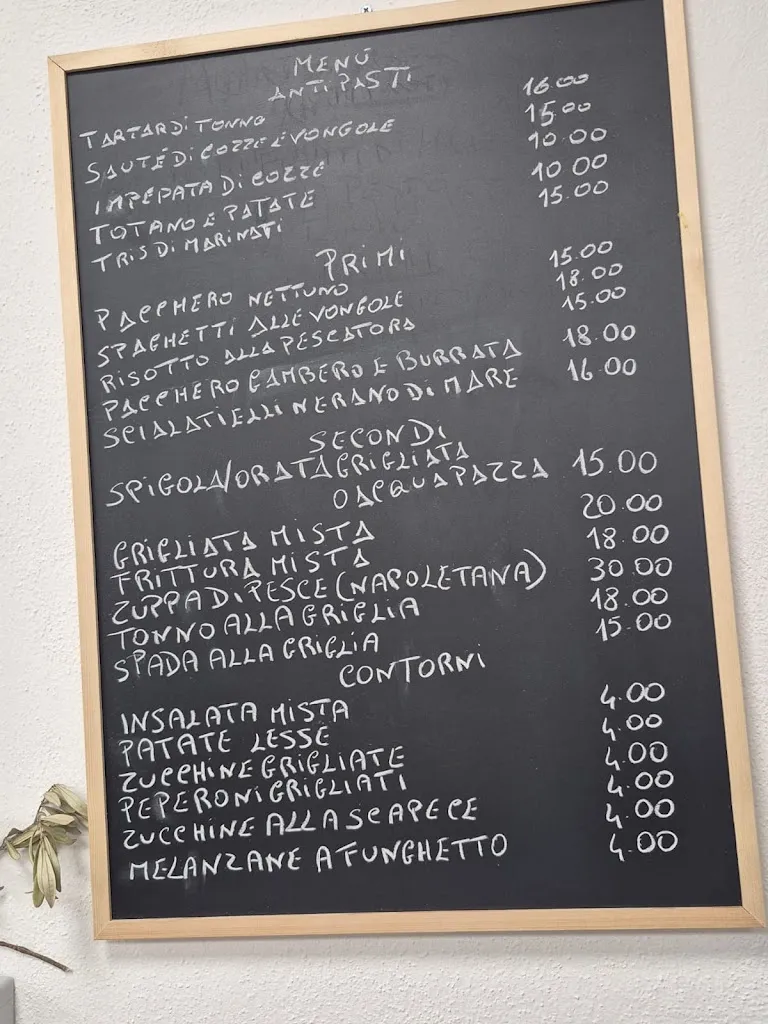 MENÚ
ANTIPASTI
TARTAR DI TONNO 16.00
SAUTÉ DI COZZE E VONGOLE 15.00
IMPEPATA DI COZZE 10.00
TOTANO E PATATE 10.00
TRIS DI MARINATI 15.00
PRIMI
PACCHERO NETTUNO 15.00
SPAGHETTI ALLE VONGOLE 18.00
RISOTTO ALLA PESCATORA 15.00
PACCHERO GAMBERO E BURRATA 18.00
SCIALATIELLI NERANO DI MARE 16.00
SECONDI
SPIGOLA/ORATA GRIGLIATA
O ACQUA PAZZA 15.00
GRIGLIATA MISTA 20.00
FRITTURA MISTA 18.00
ZUPPA DI PESCE (NAPOLETANA) 30.00
TONNO ALLA GRIGLIA 18.00
SPADA ALLA GRIGLIA 15.00
CONTORNI
INSALATA MISTA 4.00
PATATE LESSE 4.00
ZUCCHINE GRIGLIATE 4.00
PEPERONI GRIGLIATI 4.00
ZUCCHINE ALLA SCAPECE 4.00
MELANZANE A FUNGHETTO 4.00